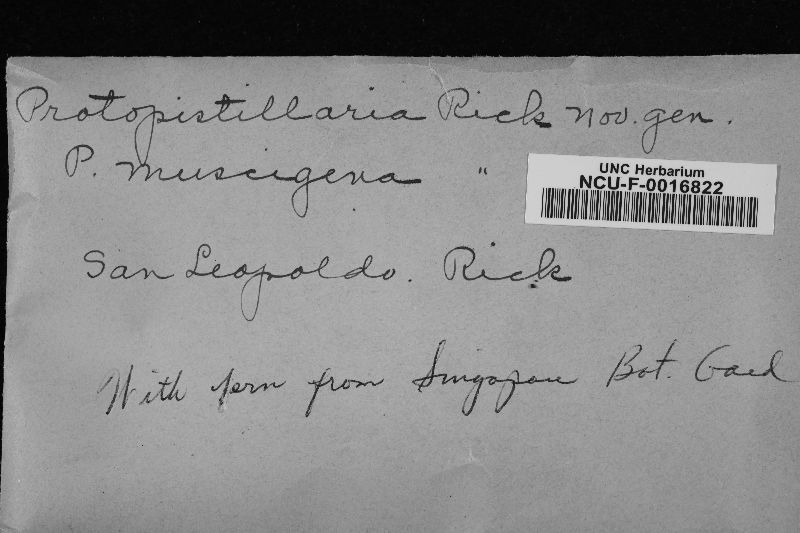 Protopistillaria Rick nov. gen.
P. muscigena "
UNC Herbarium
NCU-F-0016822
San Leopoldo. Rick
With fern from Singapau Bot. Gard